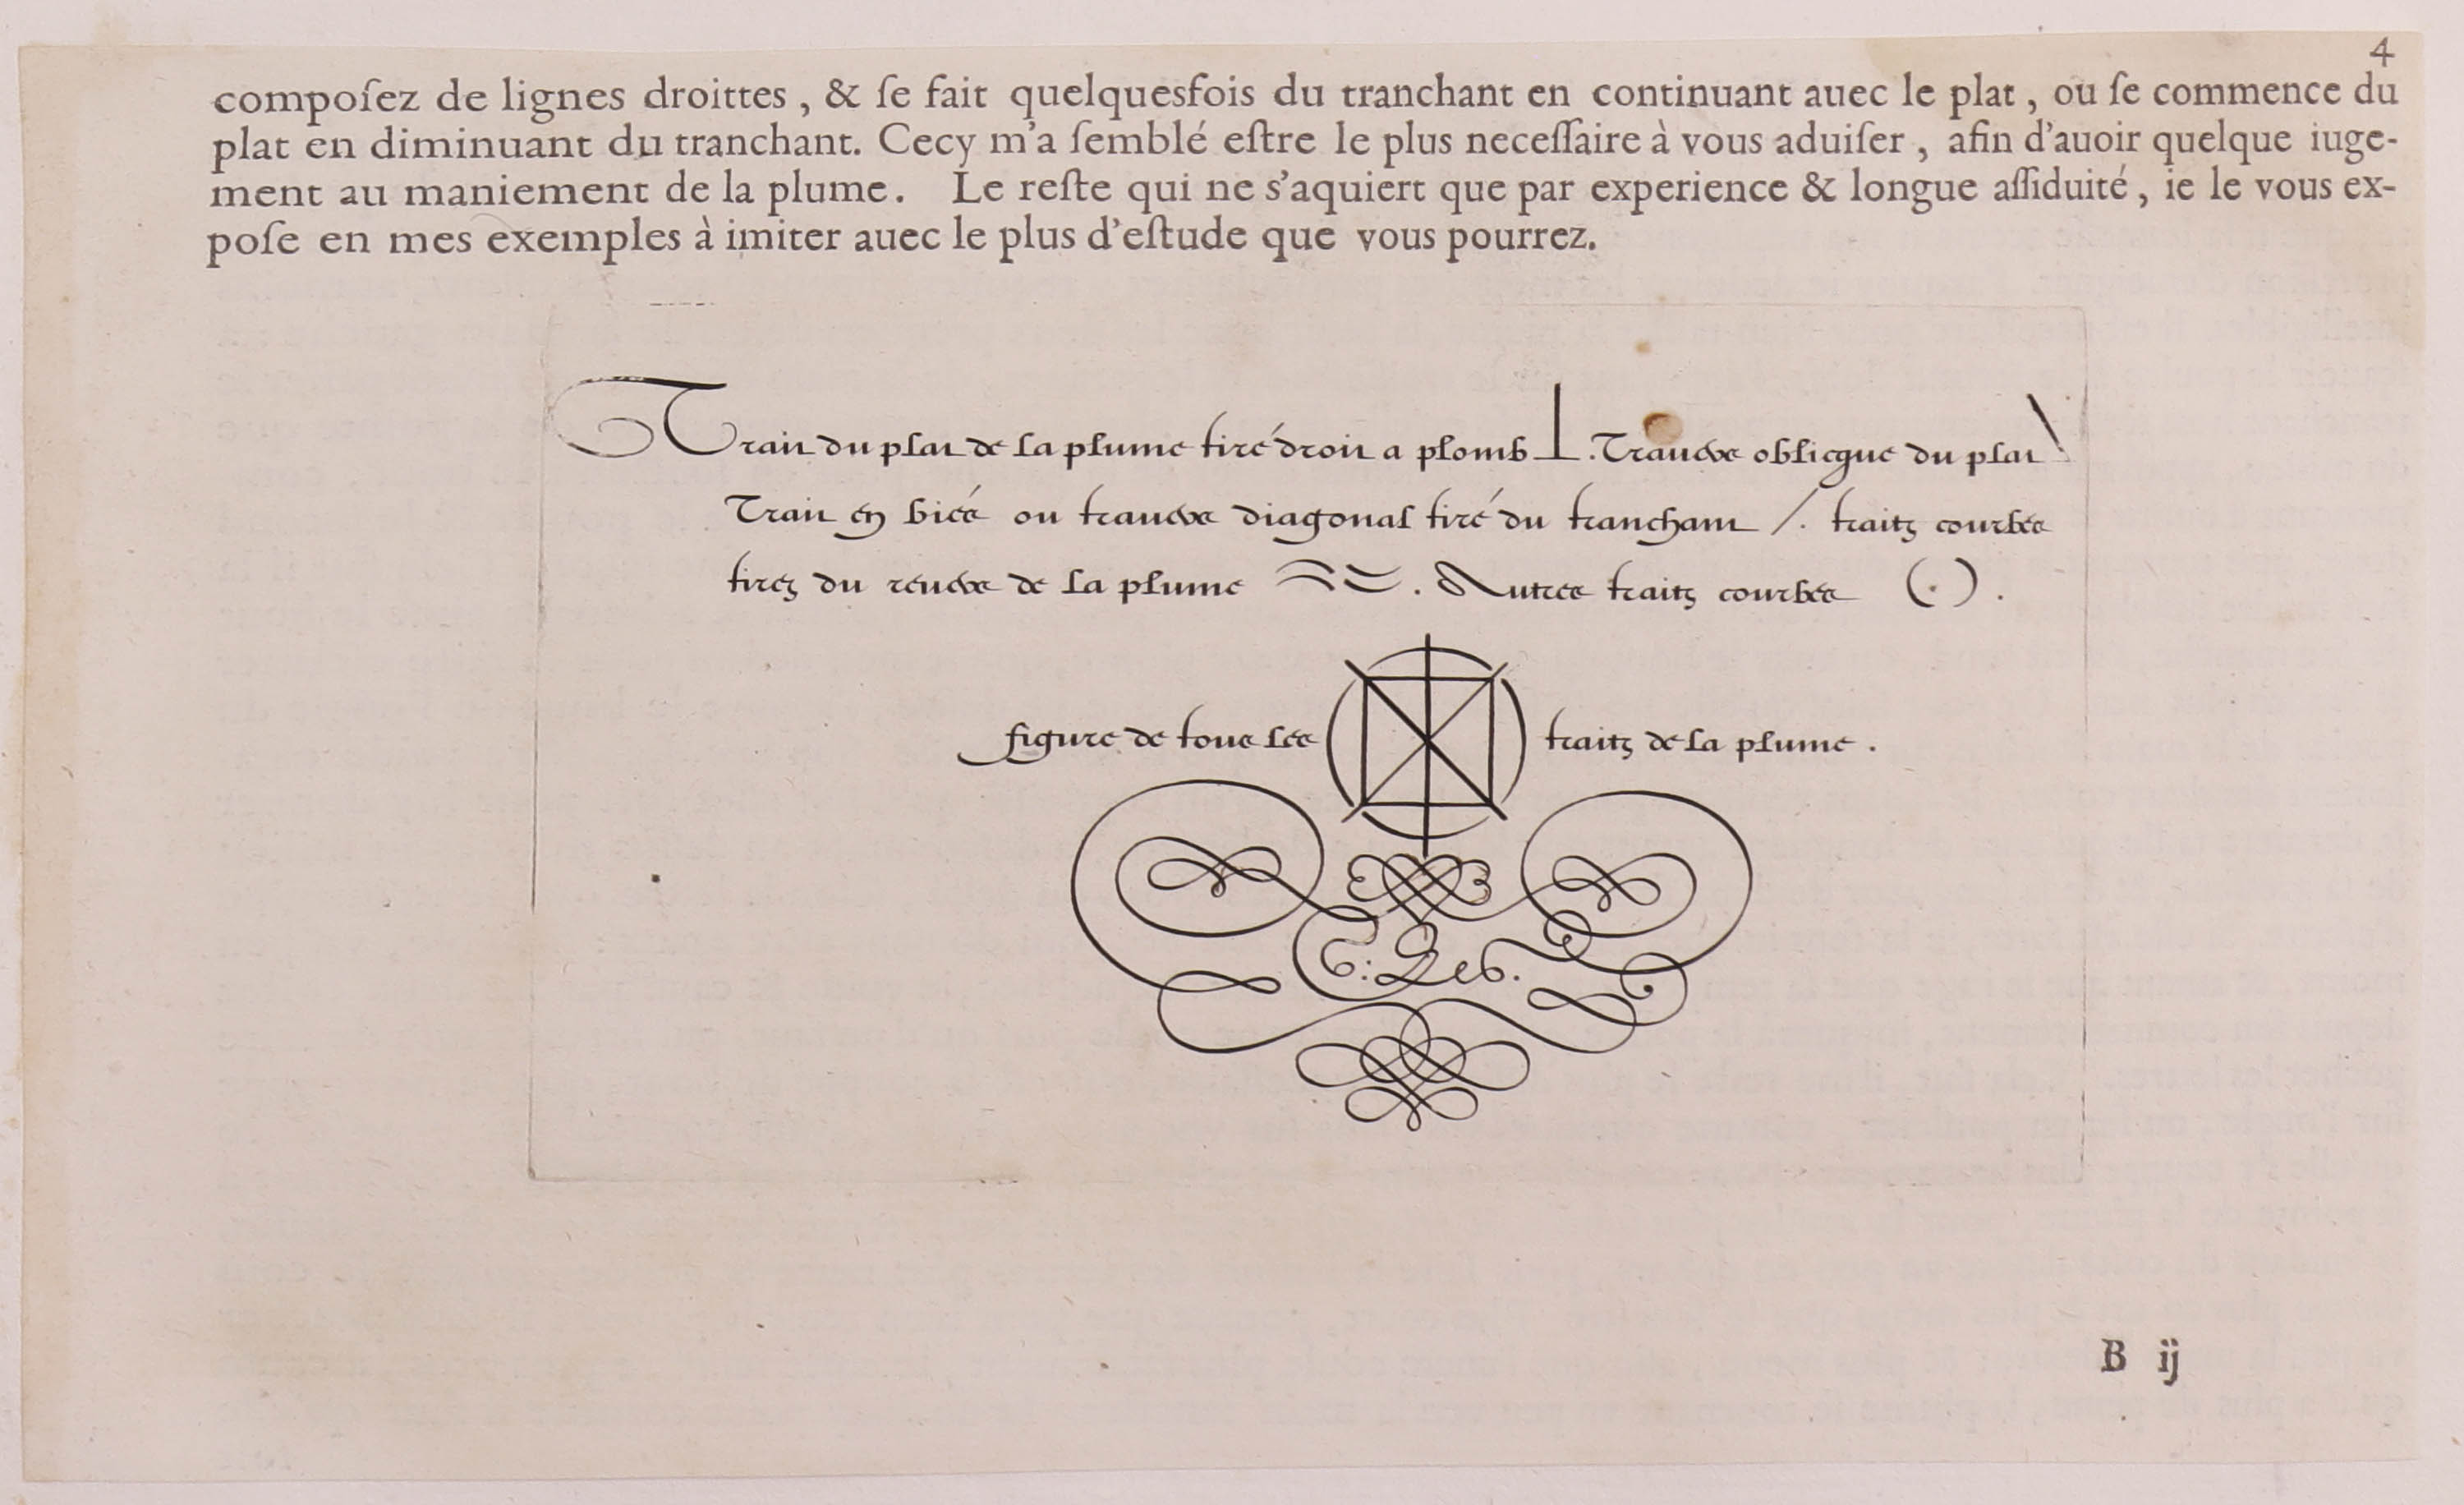 4
composez de lignes droittes, & se fait quelquesfois du tranchant en continuant auec le plat, ou se commence du
plat en diminuant du tranchant. Cecy m'a semblé estre le plus necessaire à vous aduiser, afin d'auoir quelque iuge-
ment au maniement de la plume. Le reste qui ne s'aquiert que par experience & longue assiduité, ie le vous ex-
pose en mes exemples à imiter auec le plus d'estude que vous pourrez.
Trait du plat de la plume tiré droit a plomb. Trauers oblicque du plat
Trait en biés ou trauers diagonal tiré du tranchant /. traitz courbés
tirez du reuers de la plume. Autres traitz courbés ( . ) .
figure de tous les traitz de la plume.
B ij